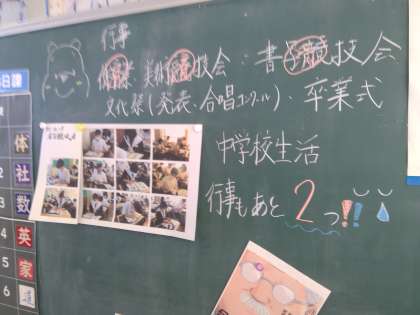 行事
体育祭 美術競技会 : 書字競技会
文化祭 (発表・合唱コンクール)、卒業式
中学校生活
行事もあと2つ!!
日課
体
社
数
4 英
5 家
6 道